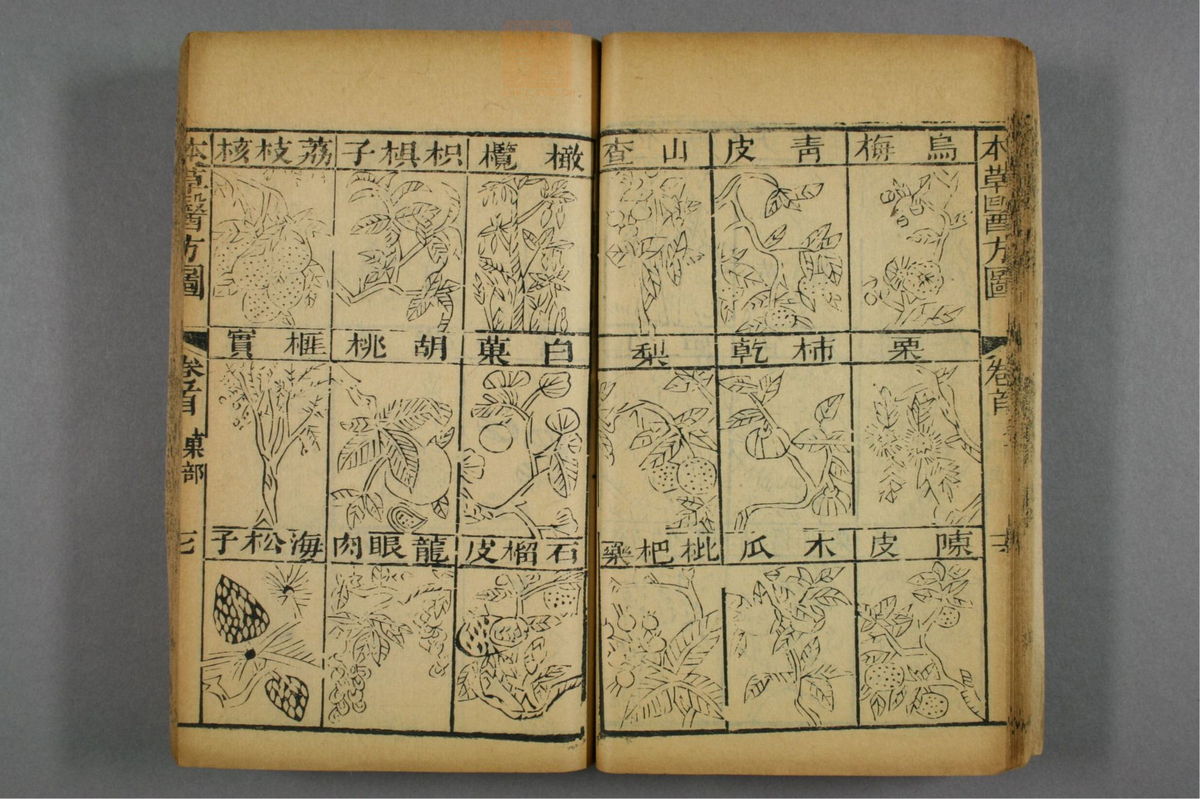 本草醫方圖
卷首
烏梅
青皮
山查
栗
柿乾
梨
陳皮
木瓜
枇杷藥
橄欖
枳椇子
荔枝核
白菓
胡桃
榧實
石榴皮
龍眼肉
海松子
本草醫方圖
卷首
菓部
七